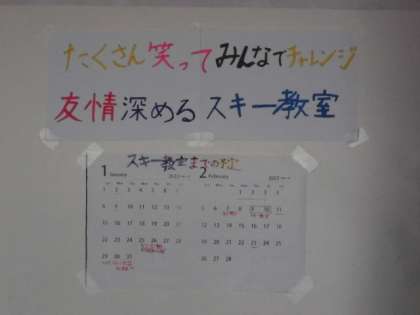 たくさん笑ってみんなでチャレンジ
友情深めるスキー教室
スキー教室までの予定
1 January 2 February
1 2 3 4 5 6 7
1 2 3 4
8 9 10 11 12 13 14
5 6 7 8 9 10 11
15 16 17 18 19 20 21
12 13 14 15 16 17 18
22 23 24 25 26 27 28
19 20 21 22 23 24 25
29 30 31
26 27 28